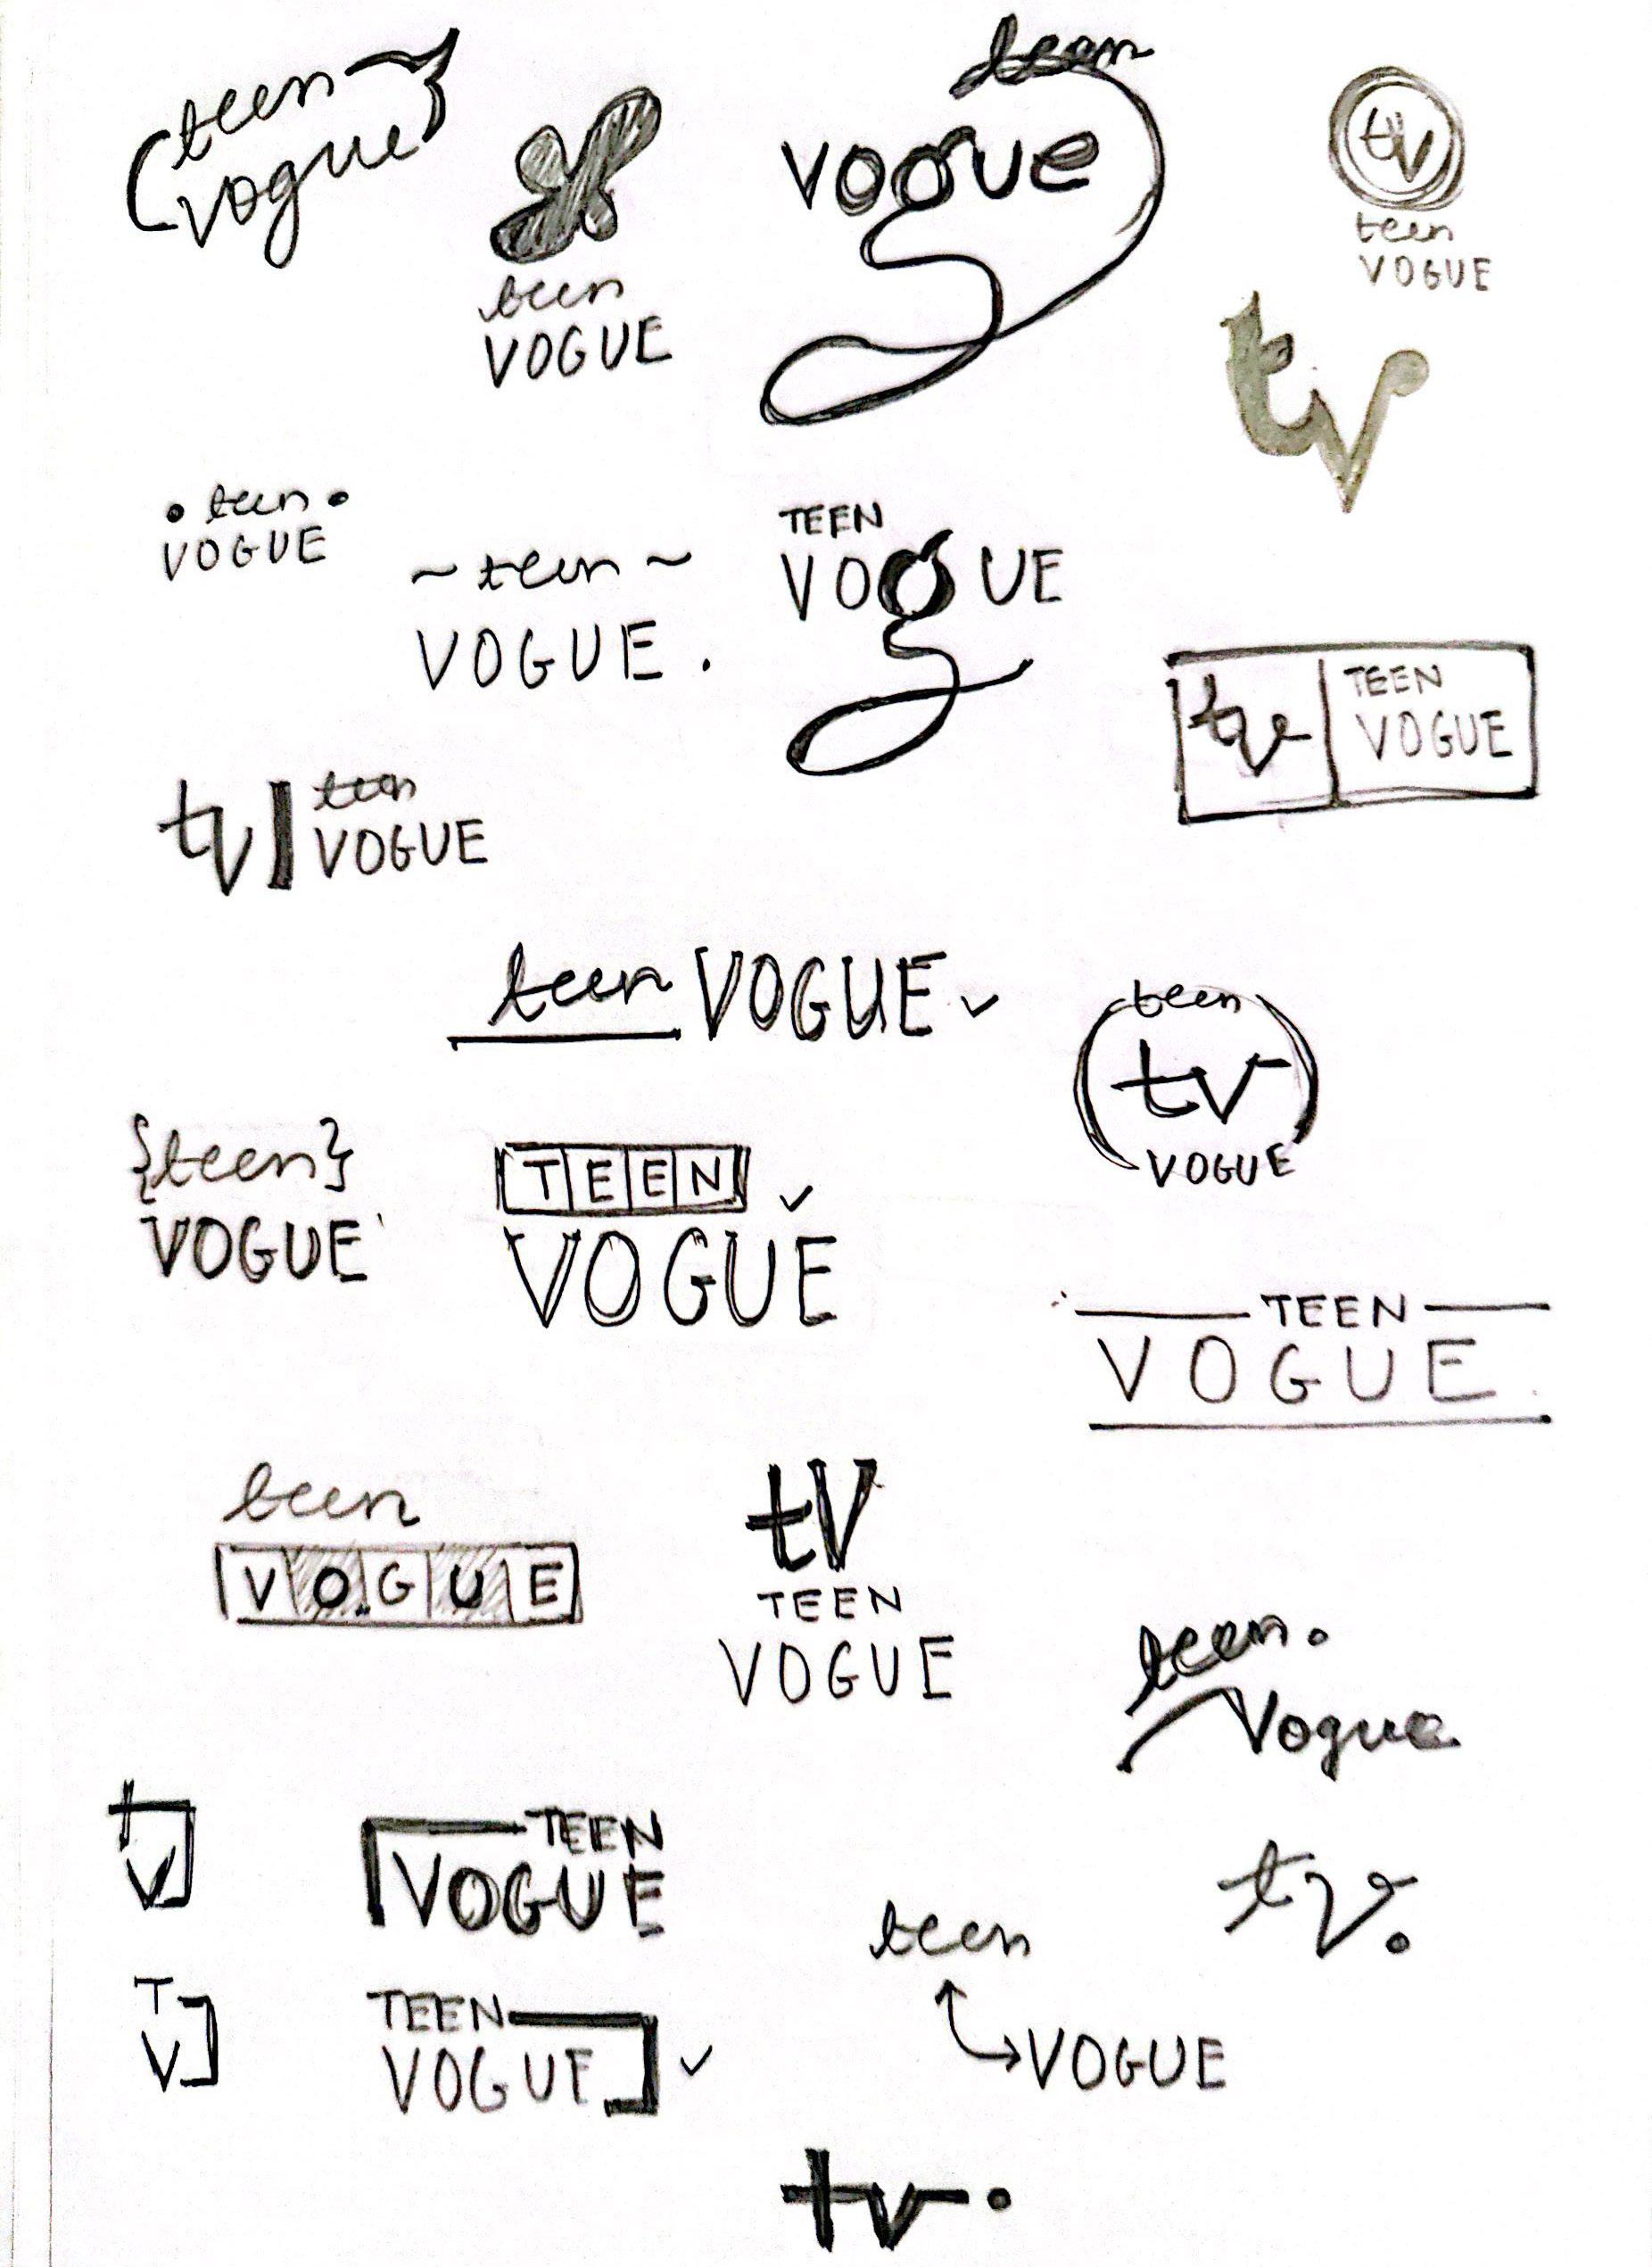 teen
vogue
teen
VOGUE
teen
vogue
tv
teen
VOGUE
tv
• teen •
VOGUE
~ teen ~
VOGUE.
TEEN
VOgUE
tv
TEEN
VOGUE
tv
teen
VOGUE
teen VOGUE
teen
tv
VOGUE
{teen}
VOGUE
TEEN
VOGUE
TEEN
VOGUE.
teen
VOGUE
tv
TEEN
VOGUE
teen.
Vogue
t
V
TEEN
VOGUE
tv.
teen
VOGUE
T
V
TEEN
VOGUE
tv.